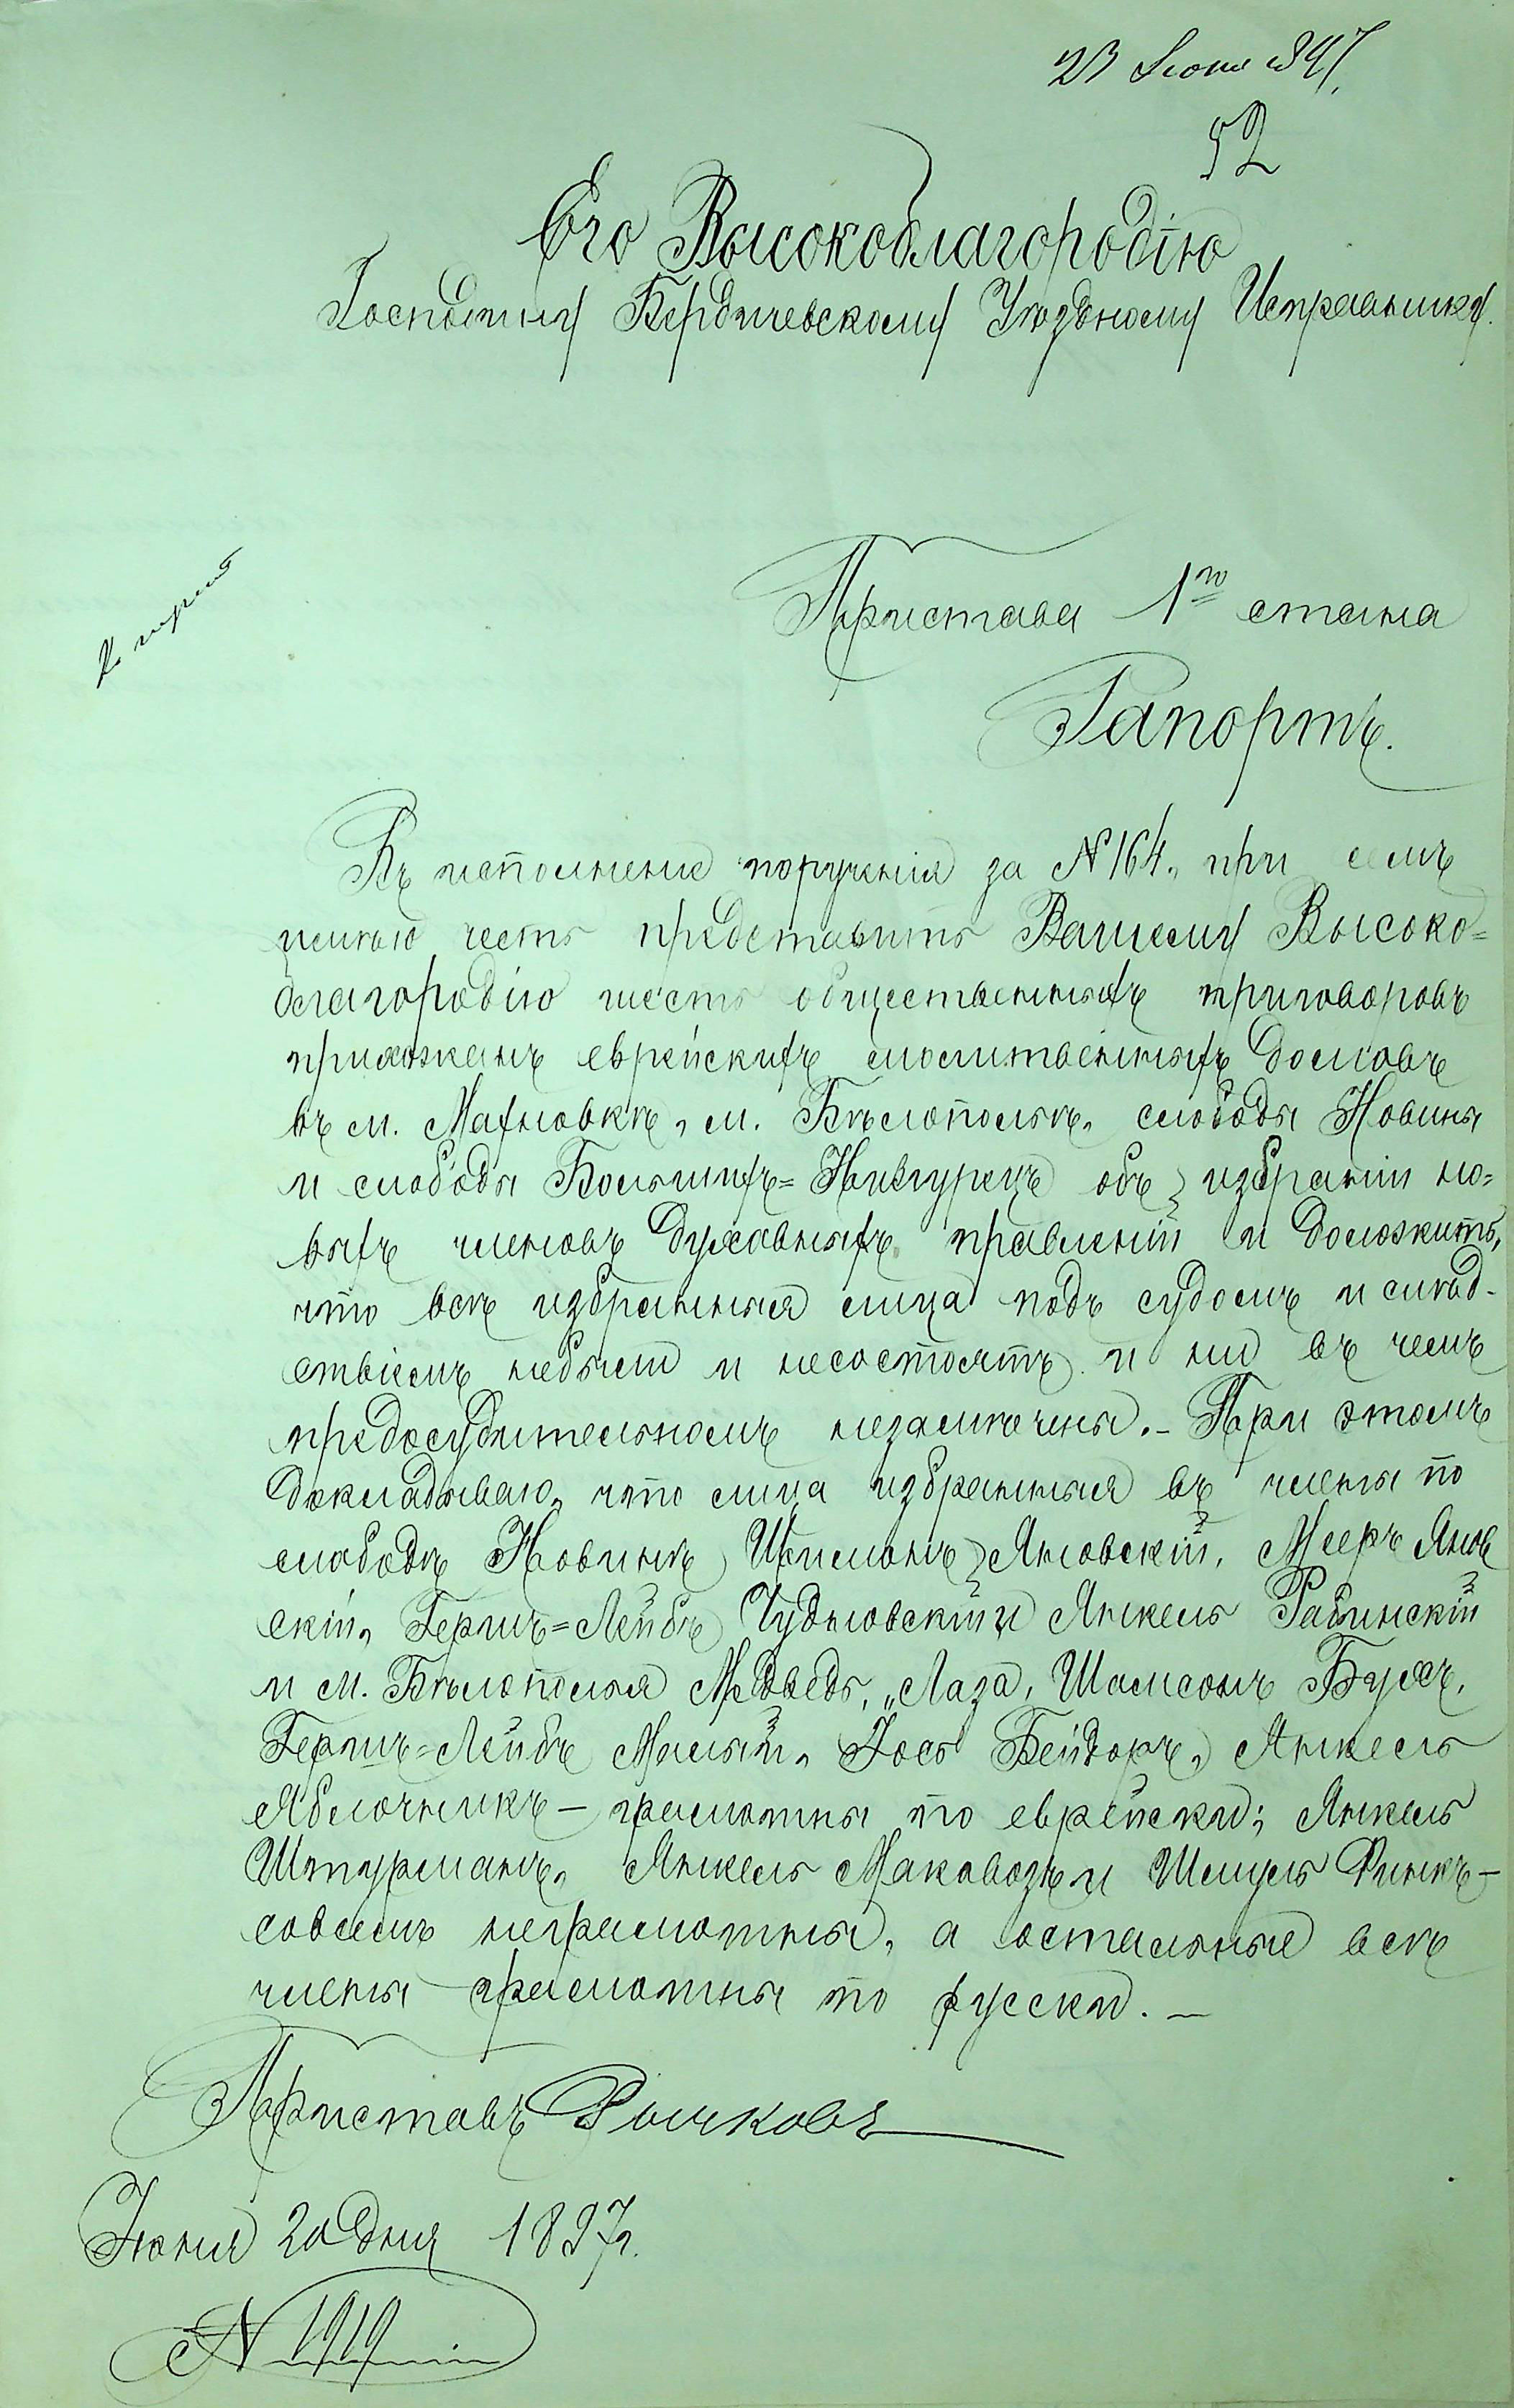 23 Июня 897.
52
Его Высокоблагородію
Господину Бердичевскому Уѣздному Исправнику.
Пристава 1го стана
Рапортъ.
Въ исполненіе порученія за №164, при семъ
имѣю честь представить Вашему Высоко=
благородію шесть общественныхъ приговоровъ
прихожанъ еврейскихъ молитвенныхъ домовъ
въ м. Махновкѣ, м. Бѣлопольѣ, слободы Новины
и слободы Большихъ=Низгурецъ объ избраніи но=
выхъ членовъ духовныхъ правленій и доложить,
что всѣ избранныя лица подъ судомъ и слѣд-
ствіемъ небыли и несостоятъ и ни въ чемъ
предосудительномъ незамѣчены.- При этомъ
докладываю, что лица избранныя въ члены по
слободѣ Новинѣ Шмилонъ Яновскій, Мееръ Янов
скій, Гершъ=Лейбъ Чудновскій и Янкель Рабинскій
и м. Бѣлополья Медведь, Лаза, Шамсонъ Бухъ,
Гершъ=Лейбъ Малый, Іось Бейдоръ, Янкель
Яблочникъ — грамотны по еврейски; Янкель
Штурманъ, Янкель Маковозъ и Шмуль Финкъ —
совсемъ неграмотны, а остальные всѣ
члены грамотны по русски. —
Приставъ Рычковъ
Іюня 20 дня 1897г.
№ 1919